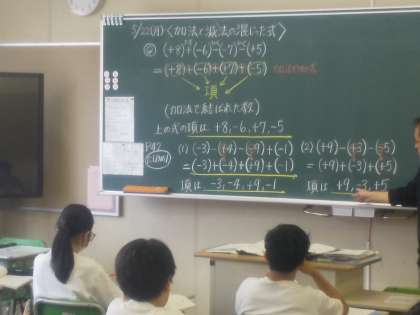 5/22(月)〈加法と減法の混じった式〉
(+8)+(-6)-(-7)+(-5)
=(+8)+(-6)+(+7)+(-5)
項
(加法で結ばれた数)
上の式の項は +8, -6, +7, -5
(1) (-3)-(+4)-(-9)+(-1)
=(-3)+(-4)+(+9)+(-1)
項は -3, -4, +9, -1
(2) (+9)-(+3)-(-5)
=(+9)+(-3)+(+5)
項は +9, -3, +5